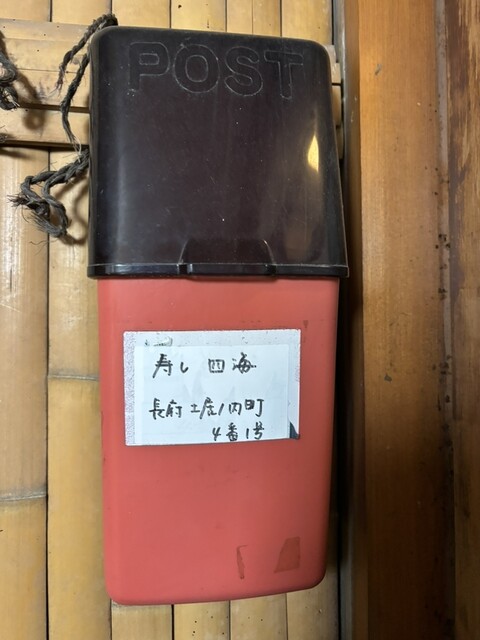 POST
寿し 四海
長府 土居ノ内町
4番1号